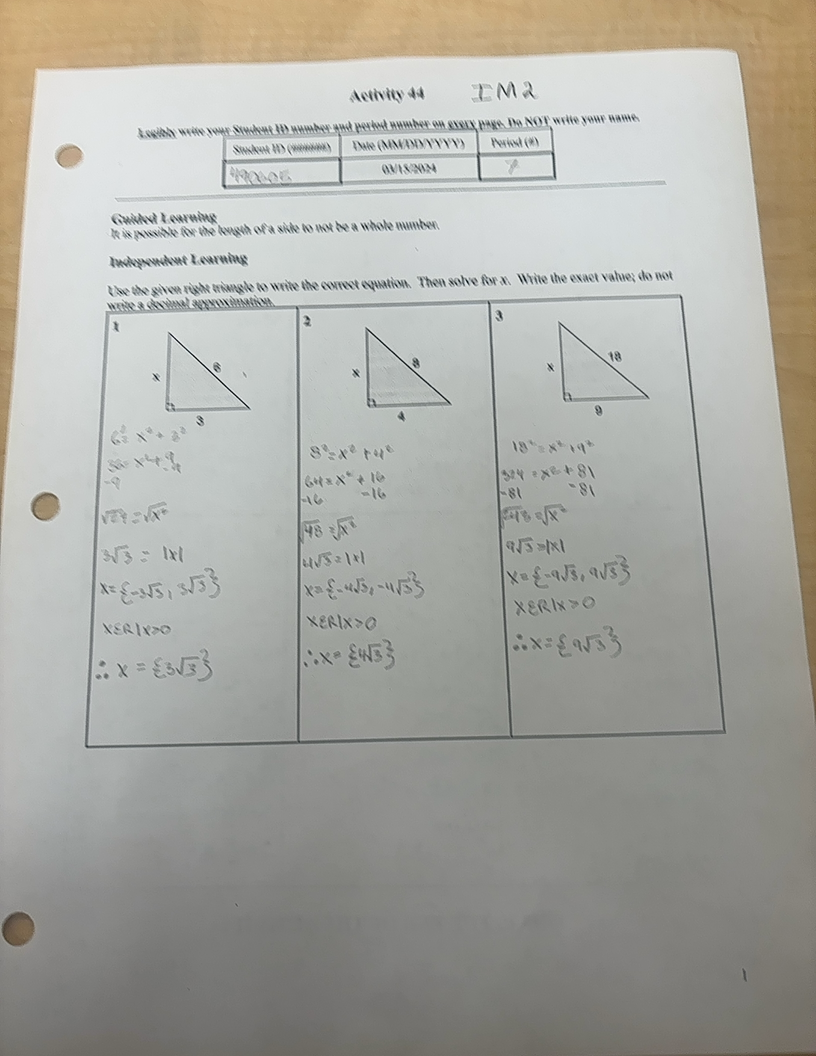 Activity 44 IM2
Legibly write your Student ID number and period number on every page. Do NOT write your name.
Student ID (######) Date (MM/DD/YYYY) Period (#)
03/15/2024 7
Guided Learning
It is possible for the length of a side to not be a whole number.
Independent Learning
Use the given right triangle to write the correct equation. Then solve for x. Write the exact value; do not
write a decimal approximation.
1
x 6
3
6² = x² + 3²
36 = x² + 9
-9 -9
√27 = √x²
3√3 = |x|
x = {-3√3, 3√3}
x∈R|x>0
∴ x = {3√3}
2
x 8
4
8² = x² + 4²
64 = x² + 16
-16 -16
√48 = √x²
4√3 = |x|
x = {-4√3, -4√3}
x∈R|x>0
∴ x = {4√3}
3
x 18
9
18² = x² + 9²
324 = x² + 81
-81 -81
= √x²
9√3 = |x|
x = {-9√3, 9√3}
x∈R|x>0
∴ x = {9√3}
1